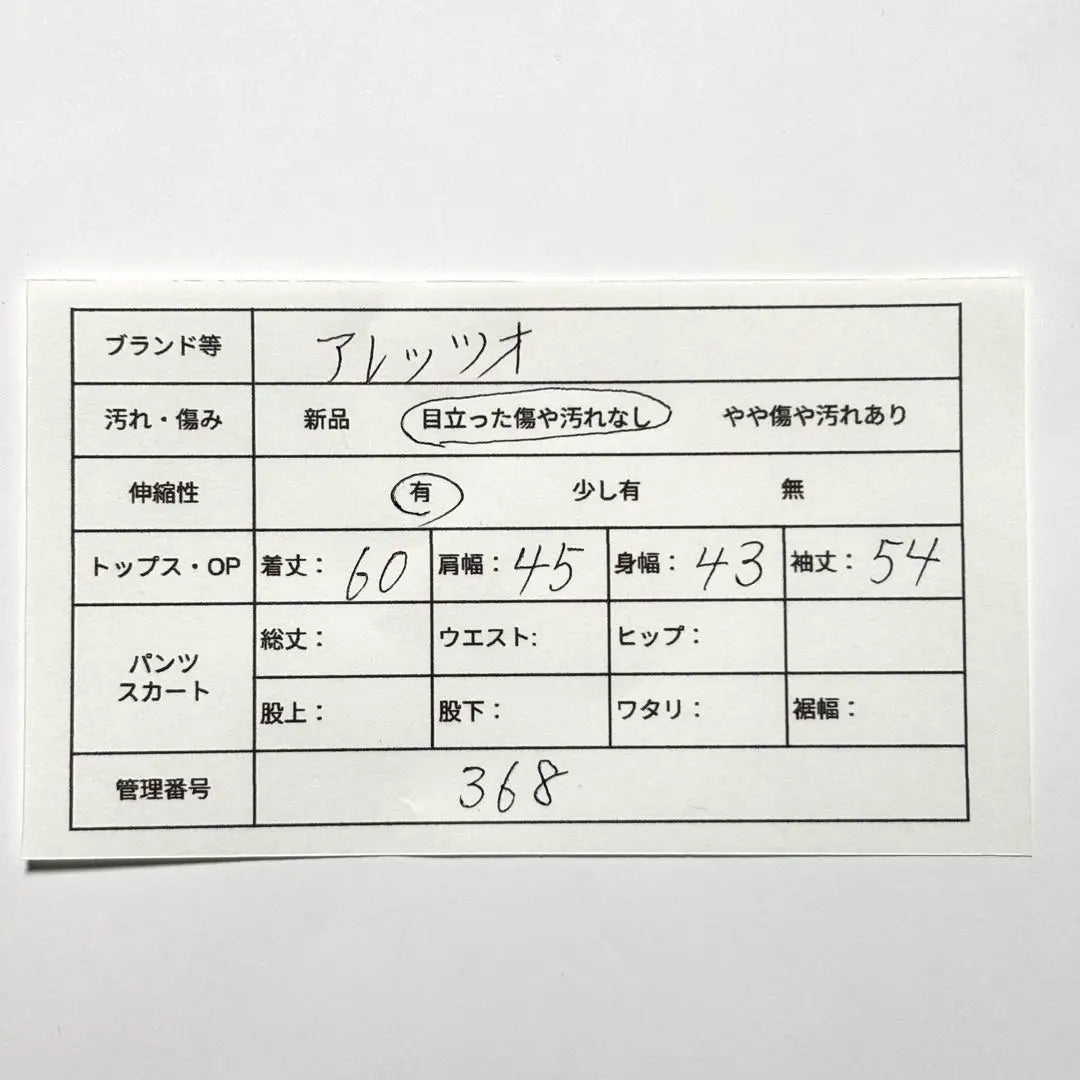 ブランド等 アレッツオ
汚れ・傷み 新品 目立った傷や汚れなし やや傷や汚れあり
伸縮性 有 少し有 無
トップス・OP 着丈： 60 肩幅： 45 身幅： 43 袖丈： 54
パンツ
スカート
総丈： ウエスト: ヒップ：
股上： 股下： ワタリ： 裾幅：
管理番号 368